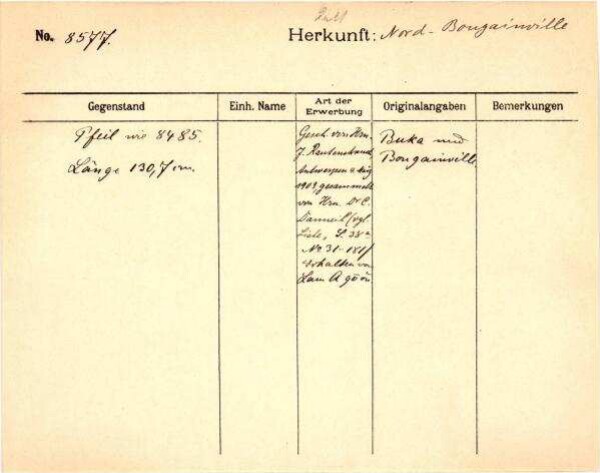 No. 8577.
Herkunft: Nord-Bougainville
Gegenstand
Einh. Name
Art der Erwerbung
Originalangaben
Bemerkungen
Pfeil wie 8485.
Länge 130,7 cm.
Gesch. von Hrn.
J. Rautenstrauch
Antwerpen
1913, gesammelt
von Hrn Dr C.
Danneil (vgl.
Liste, S. 38
No 31-181)
Erhalten von
Buka und
Bougainville